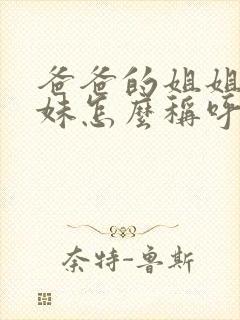 爸爸的姐姐
妹怎麼稱呼
奈特-鲁斯